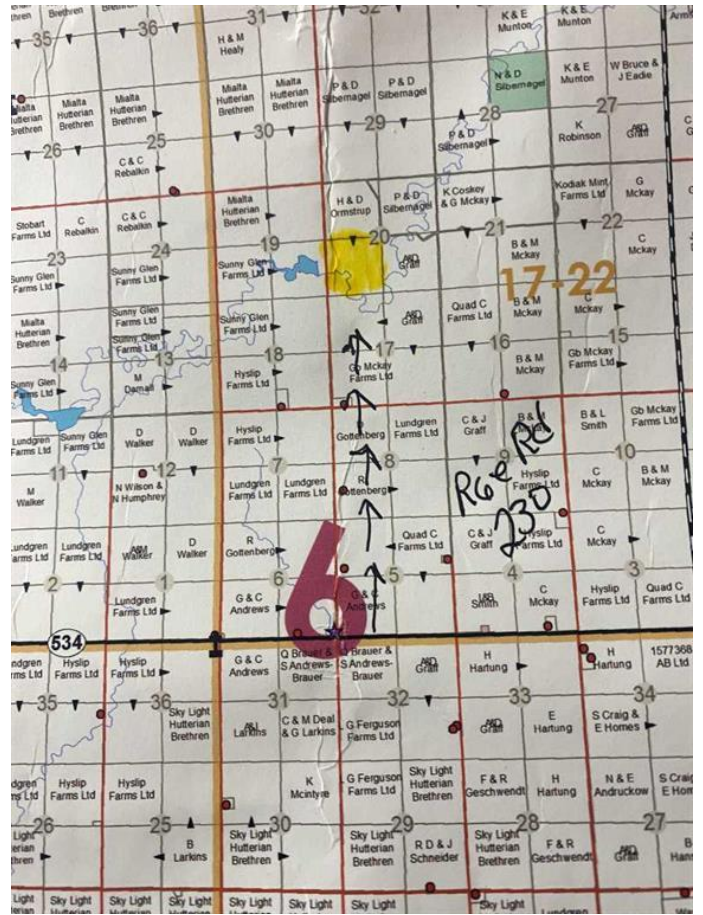 31
32
K & E
Munton
K & E
Munton
35
Brethren
36
H & M
Healy
Mialta
Hutterian
Brethren
Mialta
Hutterian
Brethren
P & D
Silbernagel
P & D
Silbernagel
N & D
Silbernagel
K & E
Munton
W Bruce &
J Eadie
Mialta
Hutterian
Brethren
Mialta
Hutterian
Brethren
28
27
26
25
30
29
P & D
Silbernagel
K
Robinson
A&D
Graff
C & C
Rebalkin
Mialta
Hutterian
Brethren
H & D
Ormstrup
P & D
Silbernagel
K Coskey
& G Mckay
Kodiak Mint
Farms Ltd
G
Mckay
Stobart
Farms Ltd
C
Rebalkin
C & C
Rebalkin
23
24
19
20
21
22
B & M
Mckay
C
Mckay
Sunny Glen
Farms Ltd
Sunny Glen
Farms Ltd
Sunny Glen
Farms Ltd
A&D
Graff
17-22
Mialta
Hutterian
Brethren
Sunny Glen
Farms Ltd
Sunny Glen
Farms Ltd
Sunny Glen
Farms Ltd
A&D
Graff
Quad C
Farms Ltd
B & M
Mckay
C
Mckay
14
13
18
17
16
15
Sunny Glen
Farms Ltd
M
Darnall
Hyslip
Farms Ltd
Gb Mckay
Farms Ltd
B & M
Mckay
Gb Mckay
Farms Ltd
Lundgren
Farms Ltd
Sunny Glen
Farms Ltd
D
Walker
D
Walker
Hyslip
Farms Ltd
Gottenberg
Lundgren
Farms Ltd
C & J
Graff
B & M
B & L
Smith
Gb Mckay
Farms Ltd
11
12
7
8
9
10
RGe Rd
230
M
Walker
N Wilson &
N Humphrey
Lundgren
Farms Ltd
Lundgren
Farms Ltd
R
Gottenberg
Hyslip
Farms Ltd
C
Mckay
B & M
Mckay
Lundgren
Farms Ltd
A&M
Walker
D
Walker
R
Gottenberg
Quad C
Farms Ltd
C & J
Graff
Hyslip
Farms Ltd
C
Mckay
2
1
6
5
4
3
6
Lundgren
Farms Ltd
G & C
Andrews
G & C
Andrews
L&B
Smith
C
Mckay
Hyslip
Farms Ltd
Quad C
Farms Ltd
534
Hyslip
Farms Ltd
Hyslip
Farms Ltd
G & C
Andrews
Q Brauer &
S Andrews-
Brauer
Q Brauer &
S Andrews-
Brauer
A&D
Graff
H
Hartung
H
Hartung
1577368
AB Ltd
35
36
31
32
33
34
Sky Light
Hutterian
Brethren
A&I
Larkins
C & M Deal
& G Larkins
G Ferguson
Farms Ltd
A&D
Graff
E
Hartung
S Craig &
E Homes
Hyslip
Farms Ltd
Hyslip
Farms Ltd
K
Mcintyre
G Ferguson
Farms Ltd
Sky Light
Hutterian
Brethren
F & R
Geschwendt
H
Hartung
N & E
Andruckow
S Craig
E Hom
26
25
30
29
28
27
B
Larkins
Sky Light
Hutterian
Brethren
Sky Light
Hutterian
Brethren
R D & J
Schneider
Sky Light
Hutterian
Brethren
F & R
Geschwendt
A&D
Graff
Light
Sky Light
Sky Light
Sky Light
Sky Light
Sky Light
Sky Light
Sky Light